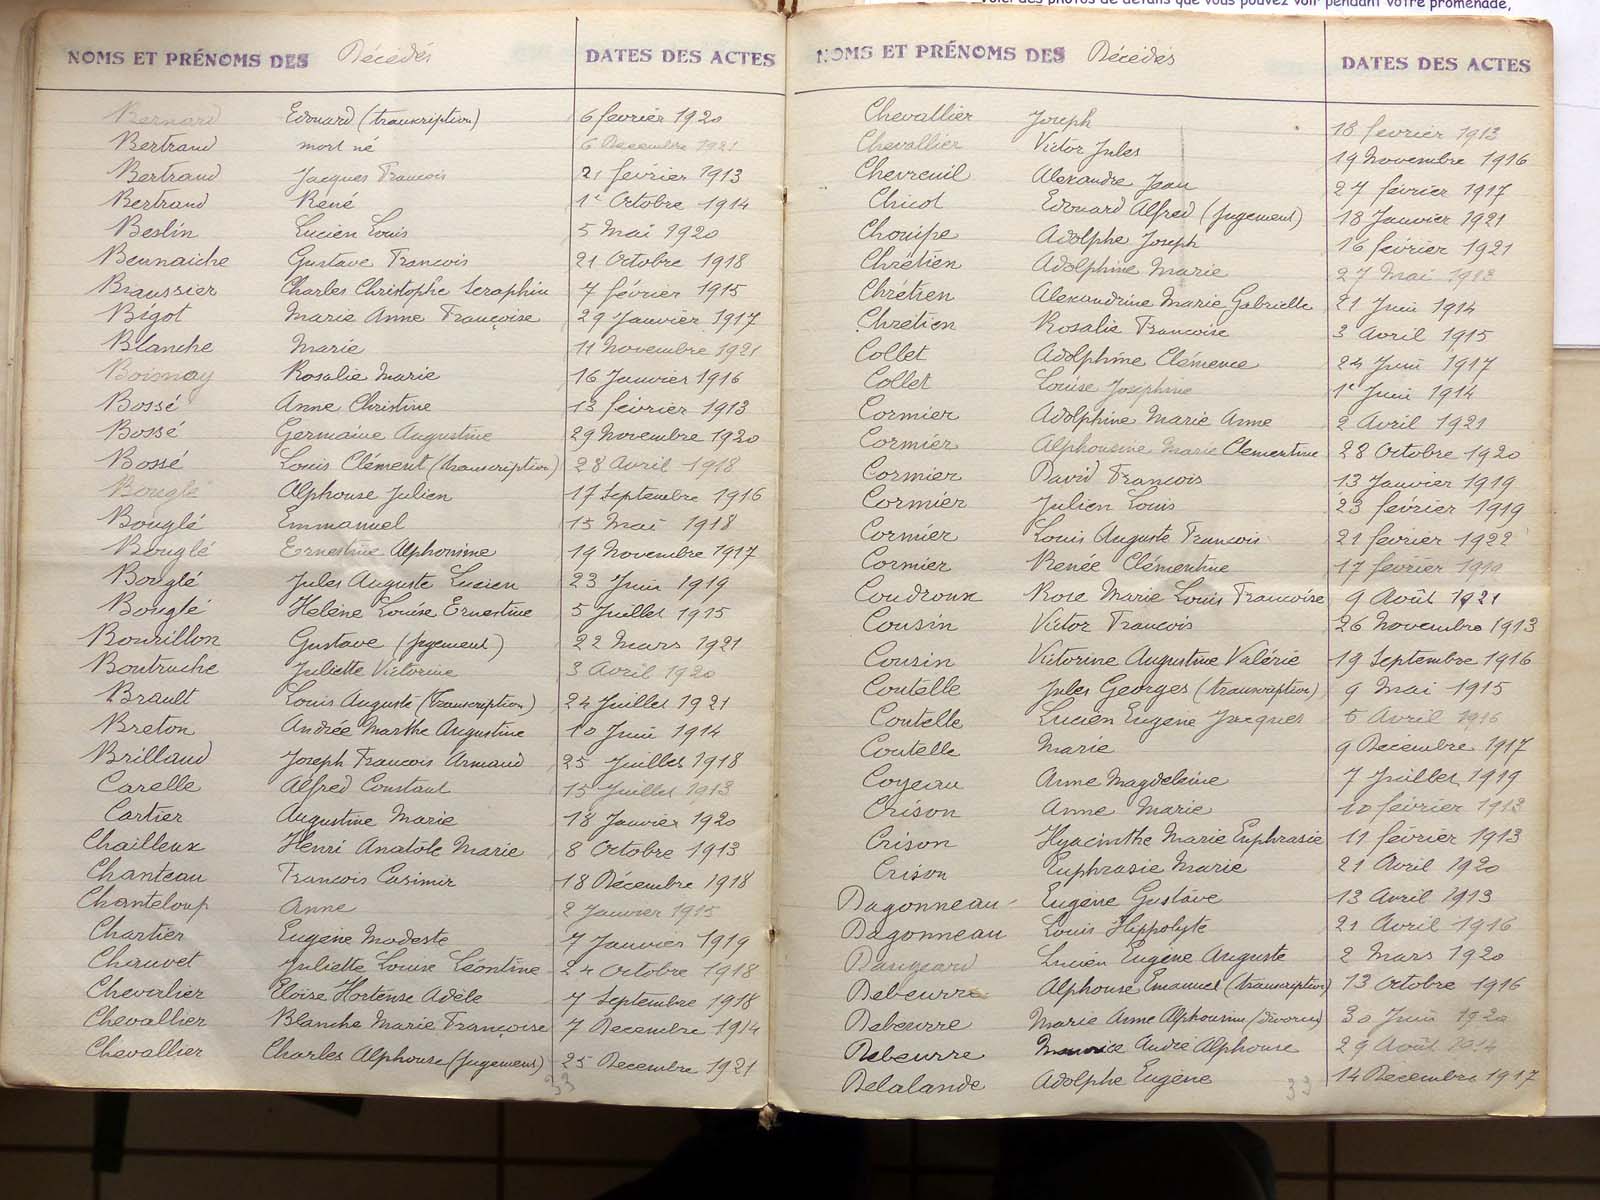 Voici des photos de détails que vous pouvez voir pendant votre promenade,
NOMS ET PRÉNOMS DES Décédés DATES DES ACTES
Bernard Edouard (transcription) 6 février 1920
Bertrand mort né 6 Decembre 1921
Bertrand Jacques Francois 21 février 1913
Bertrand René 1er Octobre 1914
Beslin Lucien Louis 5 Mai 1920
Beunaiche Gustave Francois 21 Octobre 1918
Braussier Charles Christophe Seraphin 7 février 1915
Bigot Marie Anne Françoise 29 Janvier 1917
Blanche Marie 11 Novembre 1921
Boisnay Rosalie Marie 16 Janvier 1916
Bossé Anne Christine 13 février 1913
Bossé Germaine Augustine 29 Novembre 1920
Bossé Louis Clément (transcription) 28 Avril 1918
Bouglé Alphonse Julien 17 Septembre 1916
Bouglé Emmanuel 15 Mai 1918
Bouglé Ernestine Alphonsine 19 Novembre 1917
Bouglé Jules Auguste Lucien 23 Juin 1919
Bouglé Hélène Louise Ernestine 5 Juillet 1915
Bourillon Gustave (jugement) 22 Mars 1921
Boutruche Juliette Victorine 3 Avril 1920
Brault Louis Auguste (transcription) 24 Juillet 1921
Breton Andrée Marthe Augustine 10 Juin 1914
Brilland Joseph Francois Armand 25 Juillet 1918
Carelle Alfred Constant 15 Juillet 1913
Cartier Augustine Marie 18 Janvier 1920
Chailleux Henri Anatole Marie 8 Octobre 1913
Chanteau Francois Casimir 18 Décembre 1918
Chanteloup Anne 2 Janvier 1915
Chartier Eugène Modeste 7 Janvier 1919
Chauvet Juliette Louise Léontine 24 Octobre 1918
Chevalier Eloïse Hortense Adèle 7 Septembre 1918
Chevallier Blanche Marie Françoise 7 Decembre 1914
Chevallier Charles Alphonse (Jugement) 25 Decembre 1921
33
NOMS ET PRÉNOMS DES Décédés DATES DES ACTES
Chevallier Joseph 18 février 1913
Chevallier Victor Jules 19 Novembre 1916
Chevreuil Alexandre Jean 27 février 1917
Chicot Edouard Alfred (Jugement) 18 Janvier 1921
Chouipe Adolphe Joseph 16 février 1921
Chrétien Adolphine Marie 27 Mai 1913
Chrétien Alexandrine Marie Gabrielle 21 Juin 1914
Chrétien Rosalie Francoise 3 Avril 1915
Collet Adolphine Clémence 24 Juin 1917
Collet Louise Joséphine 1er Juin 1914
Cormier Adolphine Marie Anne 2 Avril 1921
Cormier Alphonsine Marie Clementine 28 Octobre 1920
Cormier David Francois 13 Janvier 1919
Cormier Julien Louis 23 février 1919
Cormier Louis Auguste Francois 21 février 1922
Cormier Renée Clémentine 17 février 1919
Coudroux Rose Marie Louis Francoise 9 Août 1921
Cousin Victor Francois 26 Novembre 1913
Cousin Victorine Augustine Valérie 19 Septembre 1916
Coutelle Jules Georges (transcription) 9 Mai 1915
Coutelle Lucien Eugène Jacques 5 Avril 1916
Coutelle Marie 9 Décembre 1917
Coyeau Anne Magdeleine 7 Juillet 1919
Crison Anne Marie 10 février 1913
Crison Hyacinthe Marie Euphrasie 11 février 1913
Crison Euphrasie Marie 21 Avril 1920
Dagonneau Eugène Gustave 13 Avril 1913
Dagonneau Louis Hippolyte 21 Avril 1916
Daugeard Lucien Eugène Auguste 2 Mars 1920
Debeurre Alphonse Emanuel (transcription) 13 Octobre 1916
Debeurre Marie Anne Alphonsine (divorcée) 30 Juin 1920
Debeurre Maurice André Alphonse 29 Août 1914
Delalande Adolphe Eugène 14 Decembre 1917
33